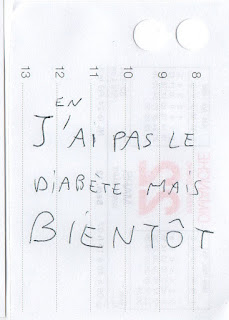 13 12 11 10 9 8
EN
J'AI PAS LE
DIABÈTE MAIS
BIENTÔT